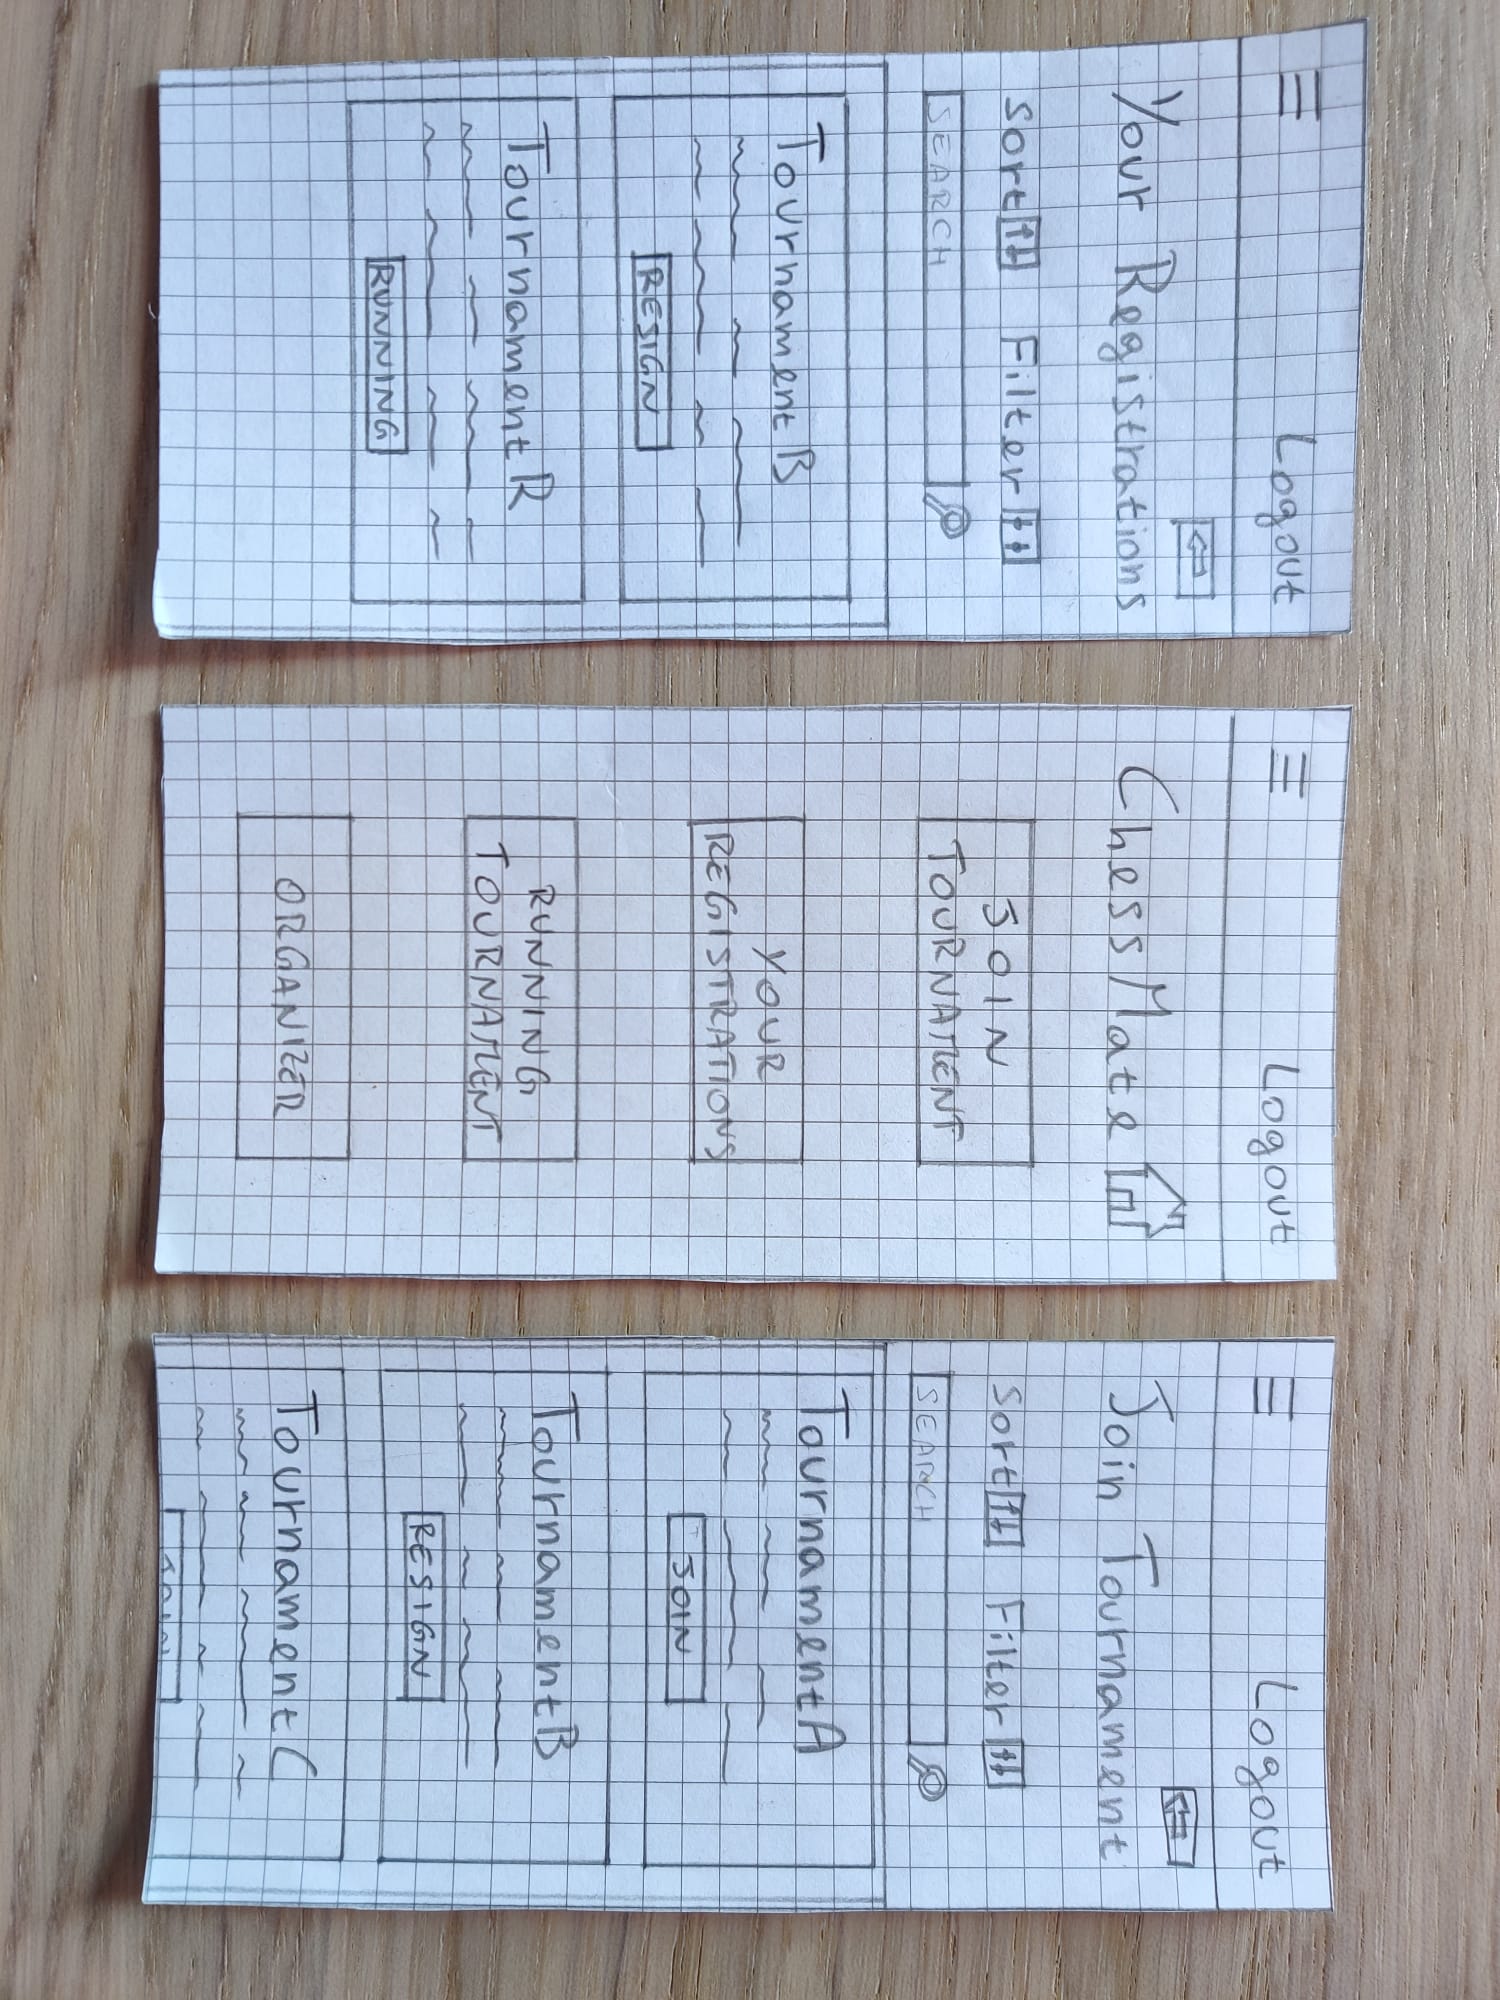 Logout
Your Registrations
Sort Filter
SEARCH
Tournament B
RESIGN
Tournament R
RUNNING
Logout
ChessMate
JOIN
TOURNAMENT
YOUR
REGISTRATIONS
RUNNING
TOURNAMENT
ORGANIZER
Logout
Join Tournament
Sort Filter
SEARCH
Tournament A
JOIN
Tournament B
RESIGN
Tournament C
JOIN